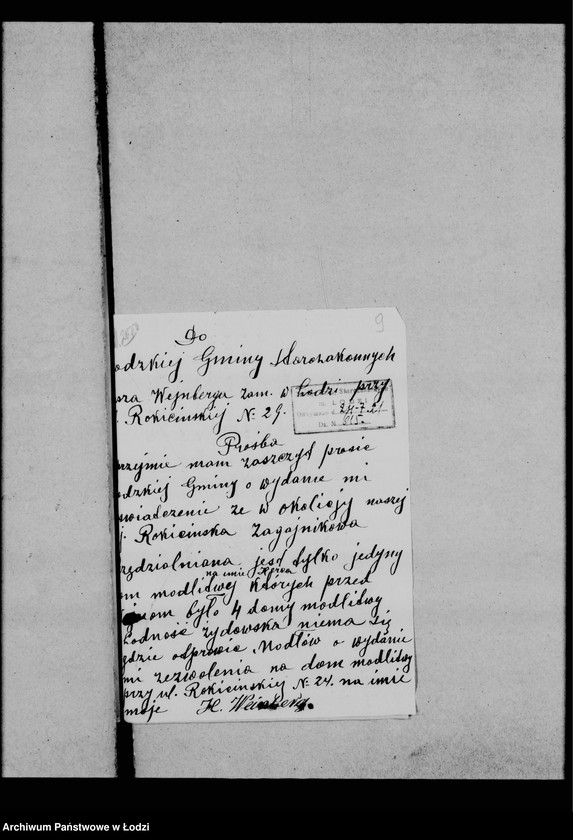 9
Do
odzkiej Gminy Starozakonnych
ora Wejnberga zam. w Łodzi przy
Rokicińskiej N. 29.
24.7.21
615.
Prośba
przejmie mam zaszczyt prosic
odzkiej Gminy o wydanie mi
swiadczenie ze w okolicjy naszej
Rokicinska Zagajnikowa
jest tylko jedyny
na imie
om modlitwy których przed
było 4 domy modlitwy
Lodność żydowska niema się
gdzie odprawic Modłów o wydanie
mi zezwolenia na dom modlitwy
przy ul. Rokicińskiej N. 24. na imie
moje H. Weinberg.
Archiwum Państwowe w Łodzi